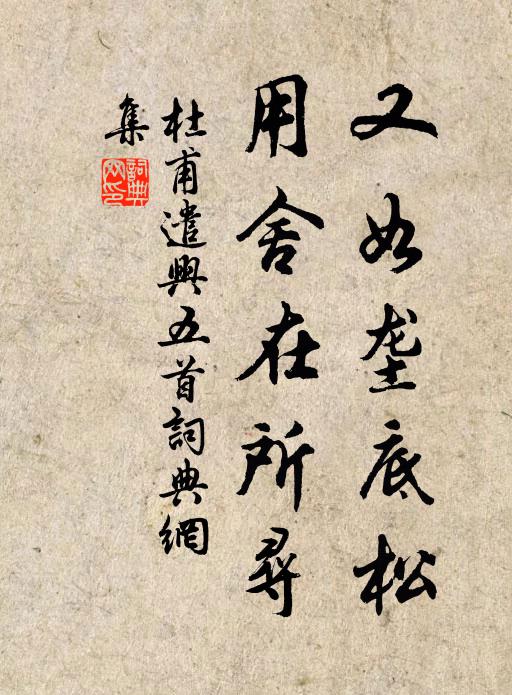 又如垄底松
用舍在所尋
杜甫遣興五首詞典網
集
詞典網印